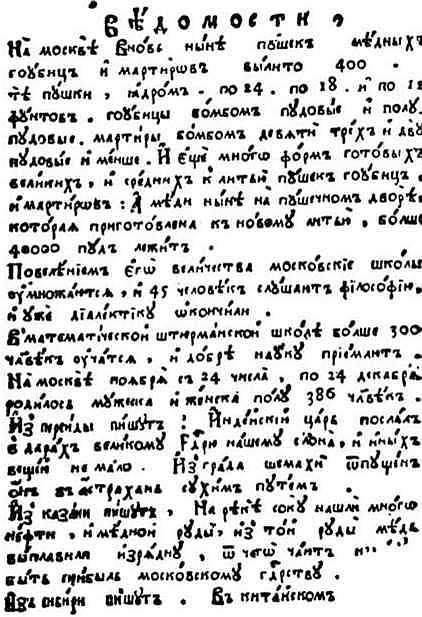 ВѢДОМОСТИ,
На москвѣ вновь нынѣ пушек мѣдныхъ
гоубицъ и мартировъ вылито 400.
тѣ пушки, ядромъ. по 24. по 18. и по 12
фунтовъ. гоубицы бомбомъ пудовые и полу
пудовые. мартиры бомбомъ девяти трехъ и дву
пудовые и менше. И еще много формъ готовыхъ
великихъ, и среднихъ к литью пушекъ гоубицъ,
и мартировъ: а мѣди нынѣ на пушечномъ дворѣ,
которая приготовлена къ новому литью, болше
40000 пудъ лежитъ.
Повелѣнiемъ егω величества московскiе школы
оумножаются, и 45 человѣкъ слушаютъ фiлософiю,
и уже дiалектiку ѡкончили.
В математической штюрманской школѣ болше 300
члвѣкъ оучатся, и добрѣ науку прiемлютъ.
На москвѣ ноября съ 24 числа, по 24 декабря
родилось мужеска и женска полу 386 члвѣкъ.
Из персиды пишутъ: Индѣйскiй царь послалъ
в дарахъ великому Гдрю нашему слона, и иныхъ
вещей не мало. Из града шемахи ѿпущенъ
онъ въ астрахань сухимъ путемъ.
Из казани пишутъ, На рѣкѣ соку нашли много
нефти, и мѣдной руды, из той руды мѣдь
выплавили изрядну, ѿ чегѡ чаютъ
быть прибыль московскому гдрству.
Изъ сибири пишутъ. Въ китайскомъ